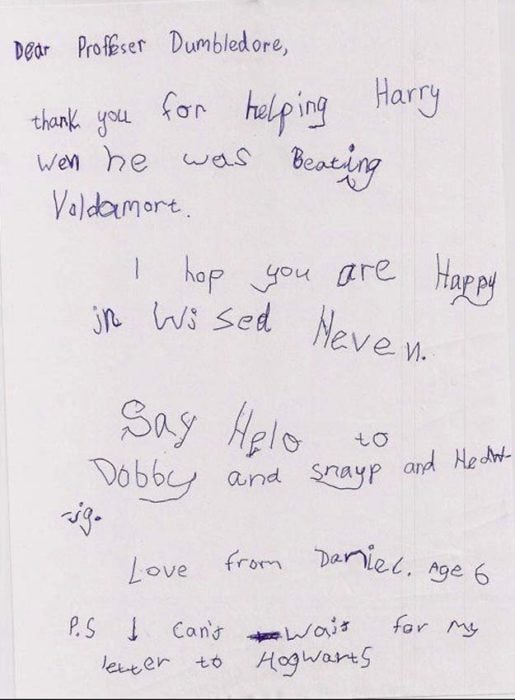 Dear Proffeser Dumbledore,
thank you for helping Harry
wen he was Beating
Voldamort.
I hop you are Happy
in Wised Heven.
Say Helo to
Dobby and snayp and Hedw
-ig.
Love from Daniel. Age 6
P.S I can't wait for my
letter to Hogwarts